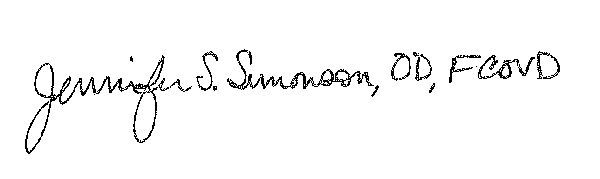 Jennifer S. Simonson, OD, FCOVD